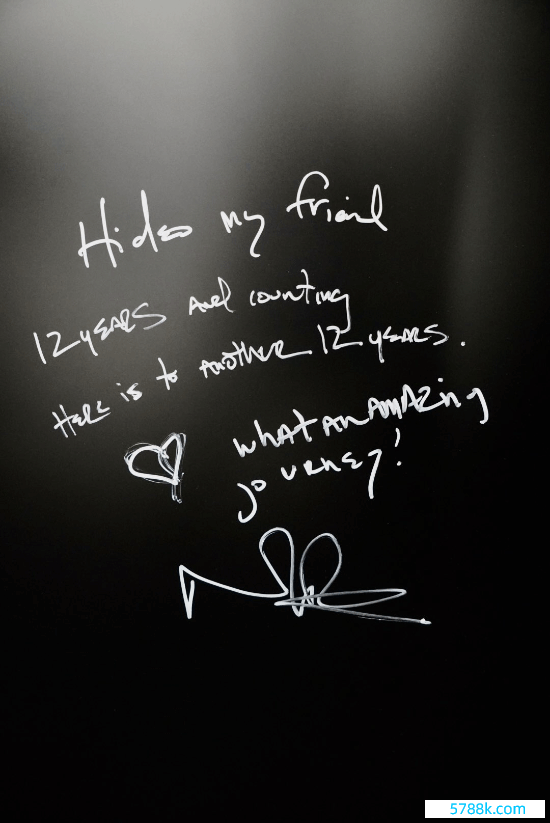 Hideo my friend
12 years and counting
Here is to another 12 years.
what an amazing
journey!
5788k.com